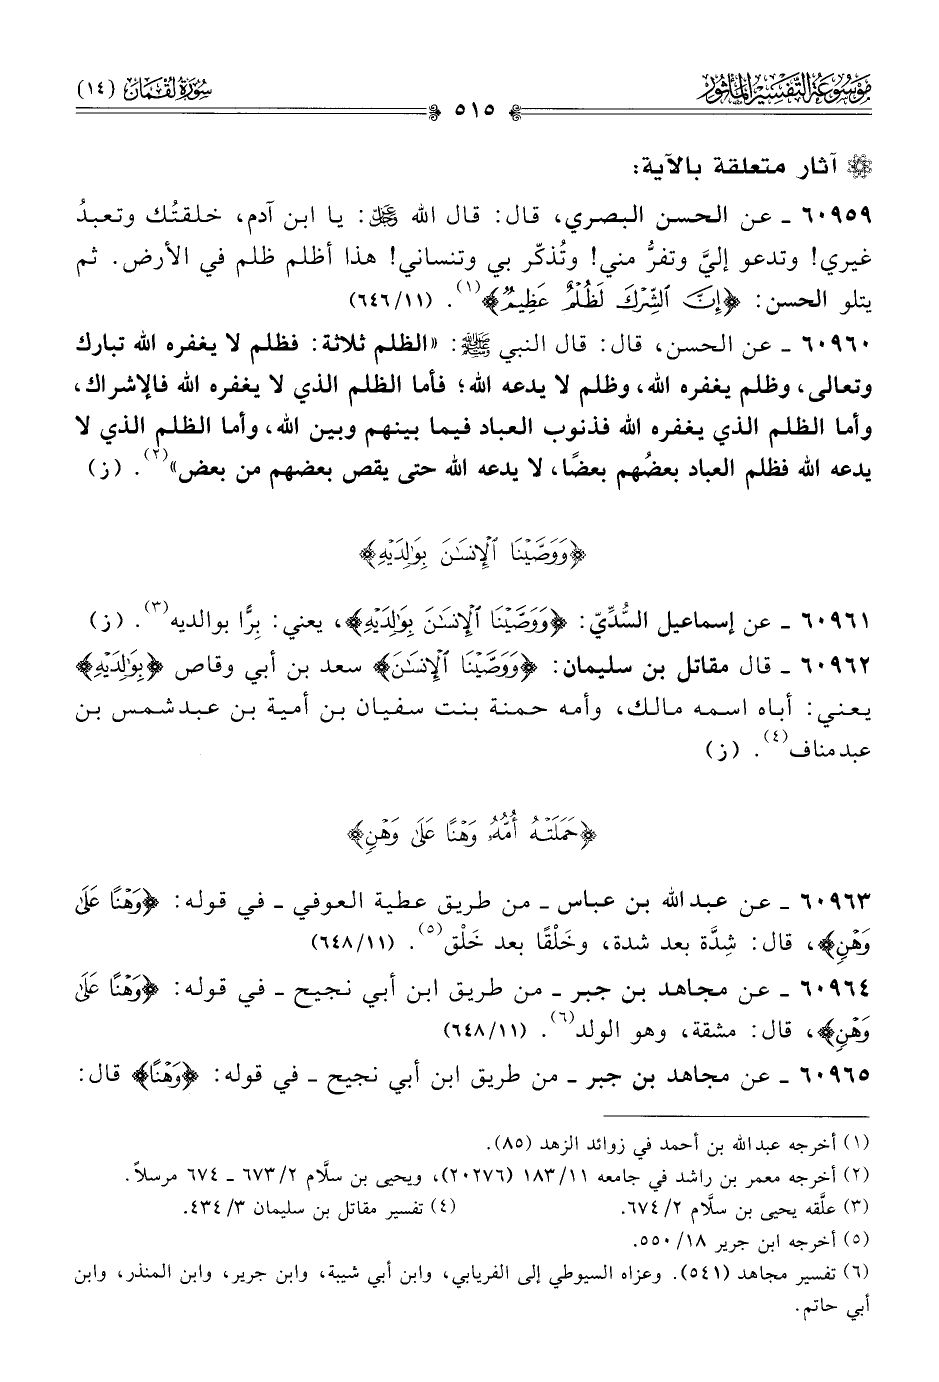 مَوْسُوعَة التَّفْسِيْر المَأثُور
سُورَةُ لُقْمَان (١٤)
٥١٥
آثار متعلقة بالآية:
٦٠٩٥٩ ـ عن الحسن البصري، قال: قال الله ﷻ: يا ابن آدم، خلقتُك وتعبدُ
غيري! وتدعو إليَّ وتفرُّ مني! وتُذكّر بي وتنساني! هذا أظلم ظلم في الأرض. ثم
يتلو الحسن: ﴿إِنَّ ٱلشِّرْكَ لَظُلْمٌ عَظِيمٌ﴾(١). (٦٤٦/١١)
٦٠٩٦٠ ـ عن الحسن، قال: قال النبي ﷺ: «الظلم ثلاثة: فظلم لا يغفره الله تبارك
وتعالى، وظلم يغفره الله، وظلم لا يدعه الله؛ فأما الظلم الذي لا يغفره الله فالإشراك،
وأما الظلم الذي يغفره الله فذنوب العباد فيما بينهم وبين الله، وأما الظلم الذي لا
يدعه الله فظلم العباد بعضُهم بعضًا، لا يدعه الله حتى يقص بعضهم من بعض»(٢). (ز)
﴿وَوَصَّيْنَا ٱلْإِنسَٰنَ بِوَٰلِدَيْهِ﴾
٦٠٩٦١ ـ عن إسماعيل السُّدِّيّ: ﴿وَوَصَّيْنَا ٱلْإِنسَٰنَ بِوَٰلِدَيْهِ﴾، يعني: بِرًّا بوالديه(٣). (ز)
٦٠٩٦٢ ـ قال مقاتل بن سليمان: ﴿وَوَصَّيْنَا ٱلْإِنسَٰنَ﴾ سعد بن أبي وقاص ﴿بِوَٰلِدَيْهِ﴾
يعني: أباه اسمه مالك، وأمه حمنة بنت سفيان بن أمية بن عبدشمس بن
عبدمناف(٤). (ز)
﴿حَمَلَتْهُ أُمُّهُۥ وَهْنًا عَلَىٰ وَهْنٍ﴾
٦٠٩٦٣ ـ عن عبدالله بن عباس ـ من طريق عطية العوفي ـ في قوله: ﴿وَهْنًا عَلَىٰ
وَهْنٍ﴾، قال: شِدَّة بعد شدة، وخَلْقًا بعد خَلْق(٥). (٦٤٨/١١)
٦٠٩٦٤ ـ عن مجاهد بن جبر ـ من طريق ابن أبي نجيح ـ في قوله: ﴿وَهْنًا عَلَىٰ
وَهْنٍ﴾، قال: مشقة، وهو الولد(٦). (٦٤٨/١١)
٦٠٩٦٥ ـ عن مجاهد بن جبر ـ من طريق ابن أبي نجيح ـ في قوله: ﴿وَهْنًا﴾ قال:
(١) أخرجه عبدالله بن أحمد في زوائد الزهد (٨٥).
(٢) أخرجه معمر بن راشد في جامعه ١٨٣/١١ (٢٠٢٧٦)، ويحيى بن سلَّام ٦٧٣/٢ ـ ٦٧٤ مرسلاً.
(٣) علَّقه يحيى بن سلَّام ٦٧٤/٢. (٤) تفسير مقاتل بن سليمان ٤٣٤/٣.
(٥) أخرجه ابن جرير ٥٥٠/١٨.
(٦) تفسير مجاهد (٥٤١). وعزاه السيوطي إلى الفريابي، وابن أبي شيبة، وابن جرير، وابن المنذر، وابن
أبي حاتم.